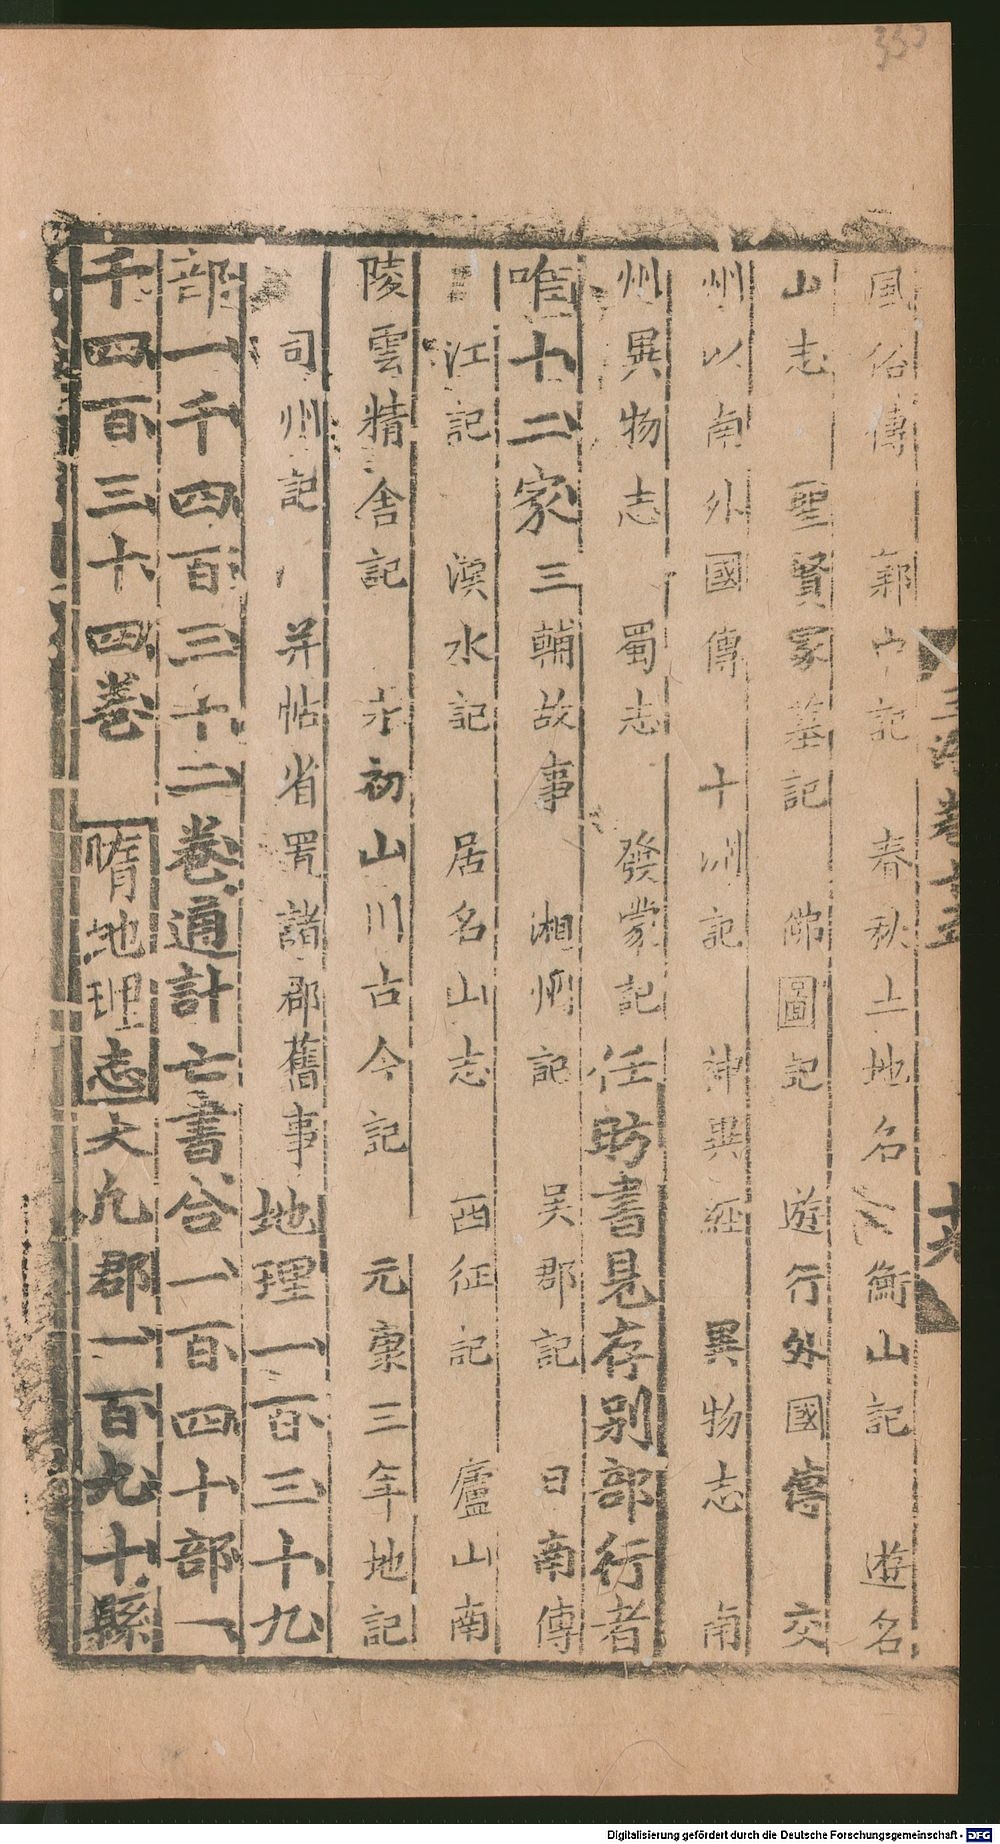 330
風俗傳　鄴中記　春秋土地名　衡山記　遊名
山志　聖賢冢墓記　佛圖記　遊行外國傳　交
州以南外國傳　十洲記　神異經　異物志　南
州異物志　蜀志　發蒙記任昉書見存别部行者
唯十二家三輔故事　湘州記　吴郡記　日南傳
江記　漢水記　居名山志　西征記　廬山南
陵雲精舍記　永初山川古今記　元康三年地記
司州記　并帖省置諸郡舊事地理一百三十九
部一千四百三十二卷通計亡書合一百四十部一
千四百三十四卷　隋地理志大凡郡一百九十縣
Digitalisierung gefördert durch die Deutsche Forschungsgemeinschaft - DFG